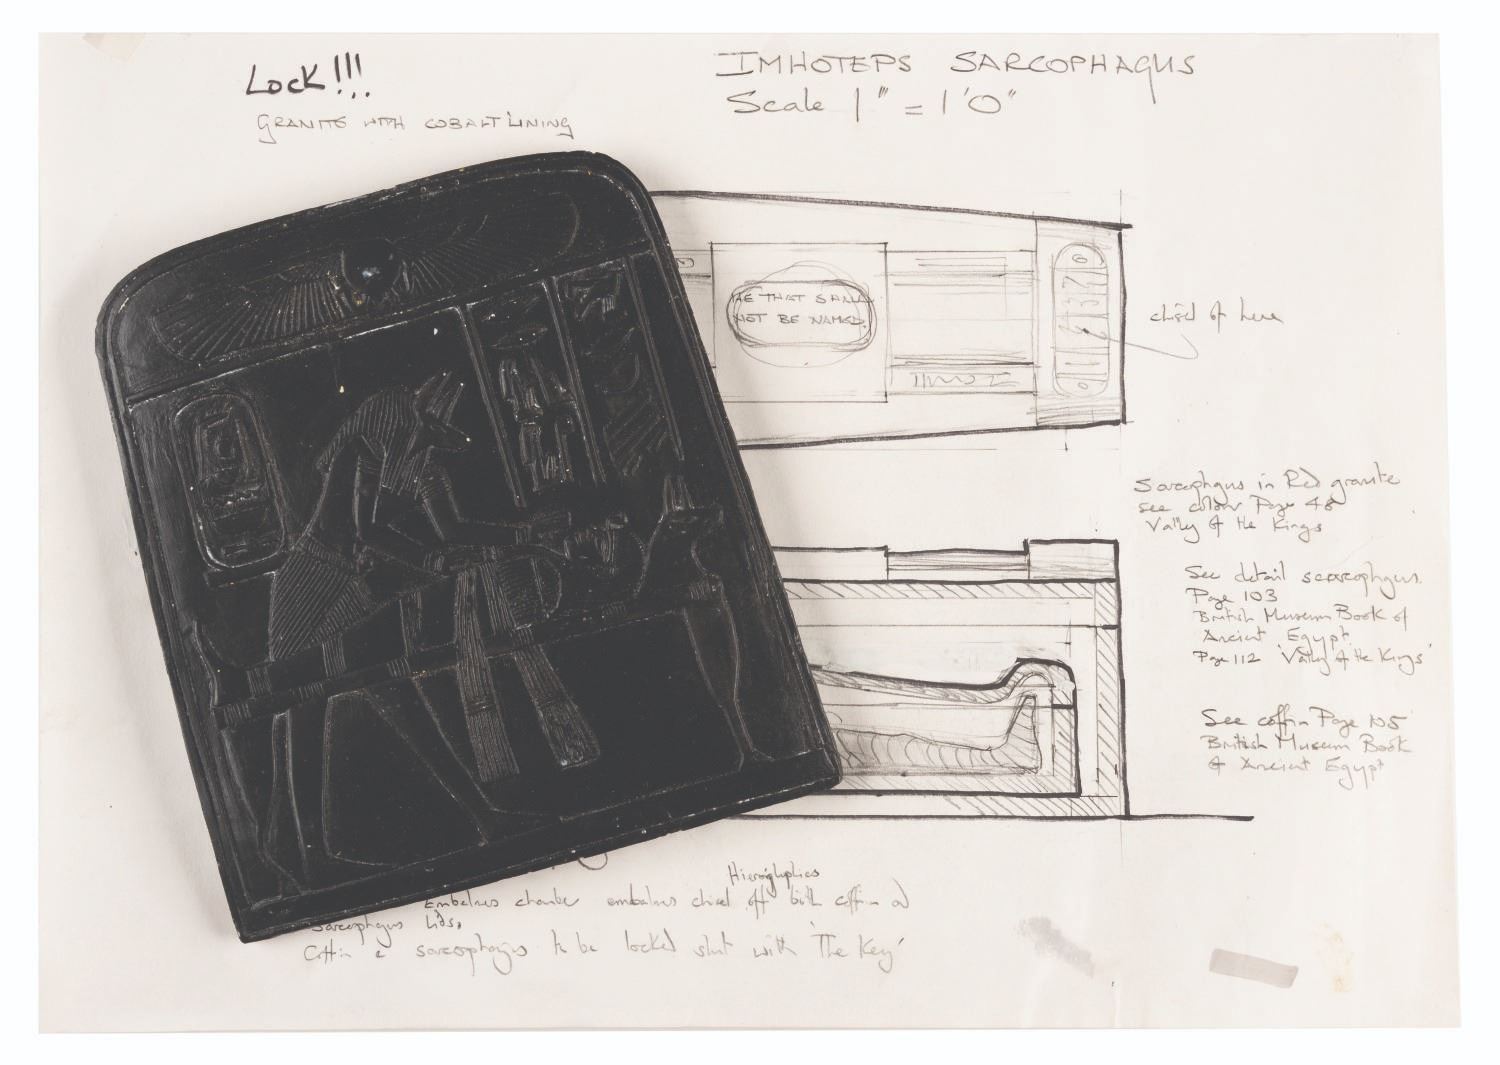 Lock!!!
GRANITE WITH COBALT LINING
IMHOTEPS SARCOPHAGUS
Scale 1" = 1'0"
HE THAT SHALL
NOT BE NAMED.
chisel of here
Sarcophgus in Red granite
see colour Page 48
Valley of the Kings
See detail scarcophgus.
Page 103
British Museum Book of
Ancient Egypt.
Page 112 'Valley of the Kings'
See coffin Page 105
British Museum Book
of Ancient Egypt
Hieroglyphics
Embalmers chamber embalmers chisel off both coffin and
Sarcophagus Lids.
Coffin & sarcophagus to be locked shut with 'The Key'